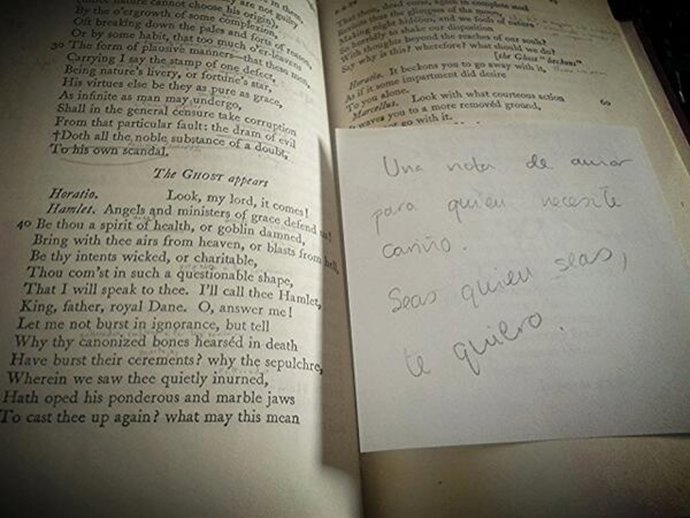 (since nature cannot choose his origin),
By the o'ergrowth of some complexion,
Oft breaking down the pales and forts of reason,
Or by some habit, that too much o'er-leavens
30 The form of plausive manners—that these men,
Carrying I say the stamp of one defect,
Being nature's livery, or fortune's star,
His virtues else be they as pure as grace,
As infinite as man may undergo,
Shall in the general censure take corruption
From that particular fault: the dram of evil
†Doth all the noble substance of a doubt,
To his own scandal.
The GHOST appears
Horatio. Look, my lord, it comes!
Hamlet. Angels and ministers of grace defend us!
40 Be thou a spirit of health, or goblin damned,
Bring with thee airs from heaven, or blasts from hell,
Be thy intents wicked, or charitable,
Thou com'st in such a questionable shape,
That I will speak to thee. I'll call thee Hamlet,
King, father, royal Dane. O, answer me!
Let me not burst in ignorance, but tell
Why thy canonized bones hearséd in death
Have burst their cerements? why the sepulchre,
Wherein we saw thee quietly inurned,
Hath oped his ponderous and marble jaws
To cast thee up again? what may this mean
That thou, dead corse, again in complete steel
Revisits thus the glimpses of the moon,
Making night hideous, and we fools of nature
So horridly to shake our disposition
With thoughts beyond the reaches of our souls?
Say why is this? wherefore? what should we do?
[the Ghost 'beckons'
Horatio. It beckons you to go away with it,
As if it some impartment did desire
To you alone.
Marcellus. Look with what courteous action 60
It waves you to a more removéd ground,
or go with it.
Una nota de amor
para quien necesite
cariño.
Seas quien seas,
te quiero.